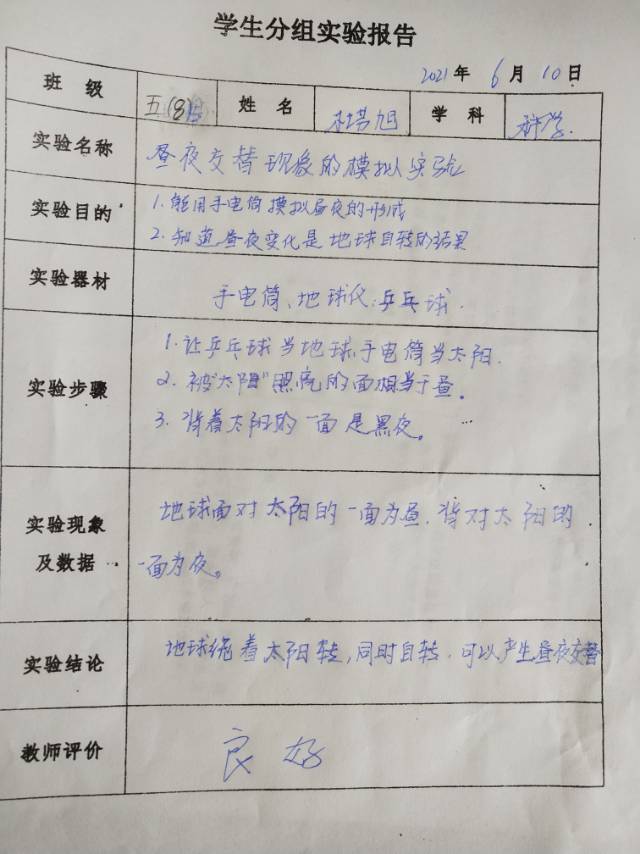 学生分组实验报告
2021年 6月 10日
班级 五(8) 姓名 杜 旭 学科 科学.
实验名称 昼夜交替现象的模拟实验
实验目的 1.能用手电筒摸拟昼夜的形成
2.知道昼夜变化是地球自转的结果
实验器材 手电筒、地球仪、乒乓球.
实验步骤 1.让乒乓球当地球,手电筒当太阳.
2.被"太阳"照亮的面相当于昼。
3.背着太阳的一面是黑夜。
实验现象 地球面对太阳的一面为昼.背对太阳的
及数据 一面为夜。
实验结论 地球绕着太阳转,同时自转.可以产生昼夜交替
教师评价 良好